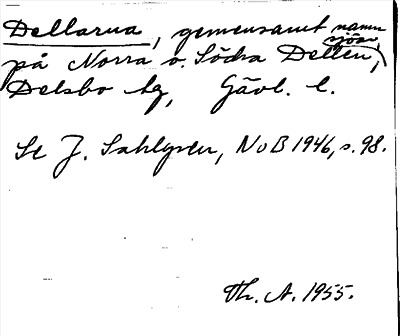 Dellarna, gemensamt namn
på Norra o. Södra Dellen, sjöar,
Delsbo sg, Gävl. l.
Se J. Sahlgren, NoB 1946, s. 98.
Th. A. 1955.